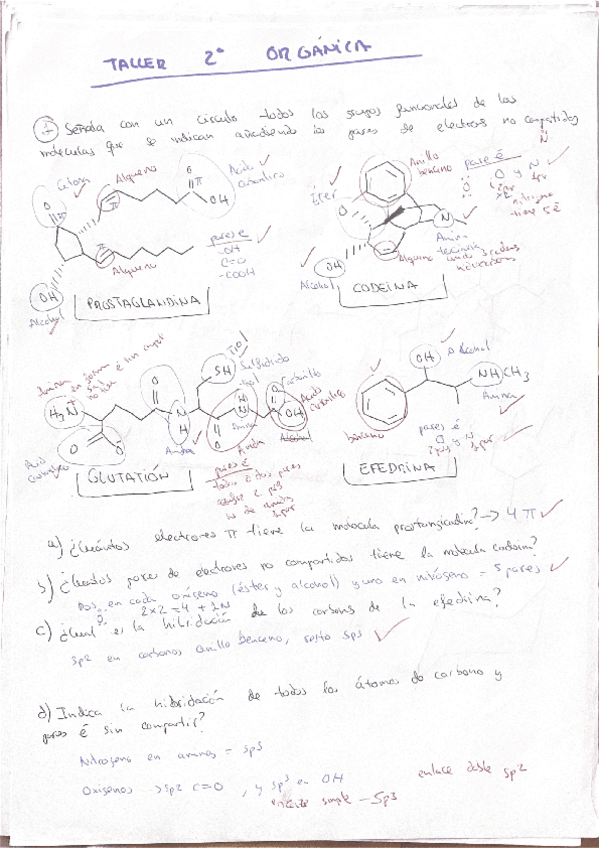 TALLER 2º ORGÁNICA
① Señala con un círculo todos los grupos funcionales de las
moléculas que se indican añadiendo los pares de electrones no compartidos
Cetona
Alqueno
6
Ácido carboxílico
O
π
OH
π
Alqueno
pares é
-OH
C=O
-COOH
OH
Alcohol
PROSTAGLANDINA
Anillo benceno
pares é
O y N
2pr 1pr
nitrógeno tiene 5 é
Éter
O
N
Amina terciaria
Alqueno
OH
Alcohol
CODEÍNA
H3N
O
O
O
SH
Tiol
N
H
H
N
O
O
OH
Ácido carboxílico
Alcohol
Amida
Amina
Amida
pares é
GLUTATIÓN
OH
Alcohol
NHCH3
Amina
benceno
pares é
O y N
EFEDRINA
a) ¿Cuántos electrones π tiene la molécula prostanglandina? → 4 π
b) ¿Cuántos pares de electrones no compartidos tiene la molécula codeína?
Dos en cada oxígeno (éster y alcohol) y uno en nitrógeno = 5 pares
2x2=4 + 1N
c) ¿Cuál es la hibridación de los carbonos de la efedrina?
sp2 en carbonos anillo benceno, resto sp3
d) Indica la hibridación de todos los átomos de carbono y
pares é sin compartir?
Nitrógeno en aminas = sp3
Oxígenos → sp2 C=O, y sp3 en OH
enlace simple - sp3
enlace doble sp2